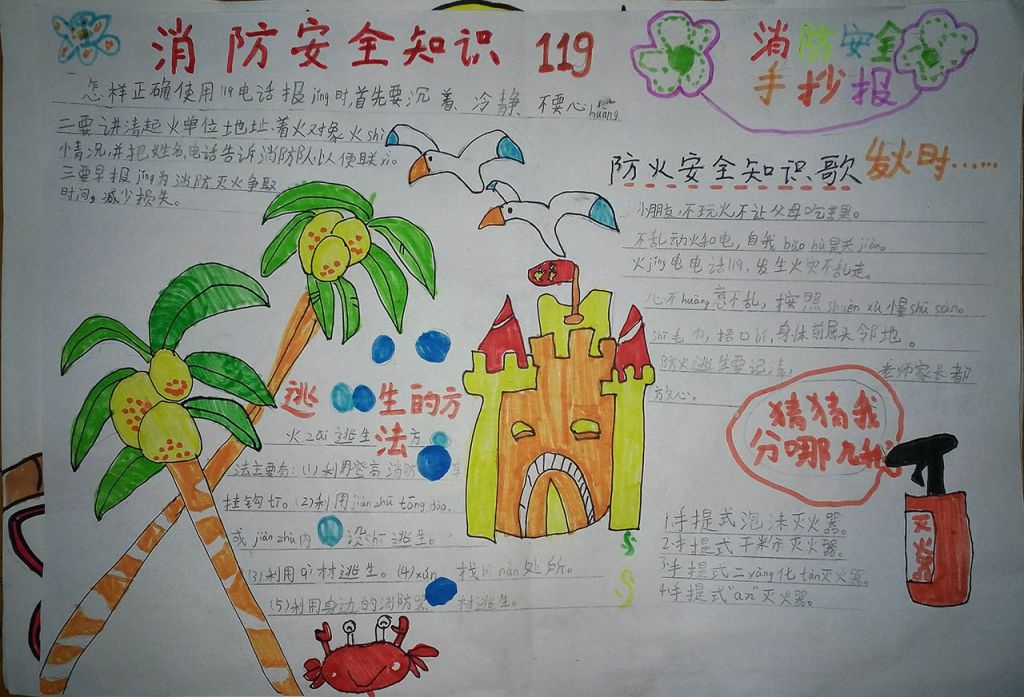 消防安全知识 119
怎样正确使用119电话报jǐng时,首先要沉着、冷静、不要心huāng
二要讲清起火单位地址、着火对象火shì
情况,并把姓名、电话告诉消防队,以便联
三要早报jǐng为消防灭火争取
时间,减少损失。
消防安全
手抄报
防火安全知识歌
发火时……
小朋友,不玩火不让父母吃苦果。
不乱动火和电,自我bǎo hù是关jiàn。
火jǐng电电话119,发生火灾不乱走。
心不huāng意不乱,按照shuèn xù
shī毛巾,捂口bí,身体前屈头邻地。
防火逃生要记清,老师家长都
放心。
逃生的方
法
火zāi逃生方
法主要有:(1)利用登高消防
挂钩
(2)利用jiàn zhù tōng dào,
或jiàn zhù内
设shī逃生。
(3)利用qì材逃生。(4)xún找bì nàn处所。
(5)利用身边的消防器材逃生。
猜猜我
分哪几
灭火器
1手提式泡沫灭火器。
2手提式干米示灭火器。
3手提式二yǎng化tàn灭火器。
4手提式"an"灭火器。